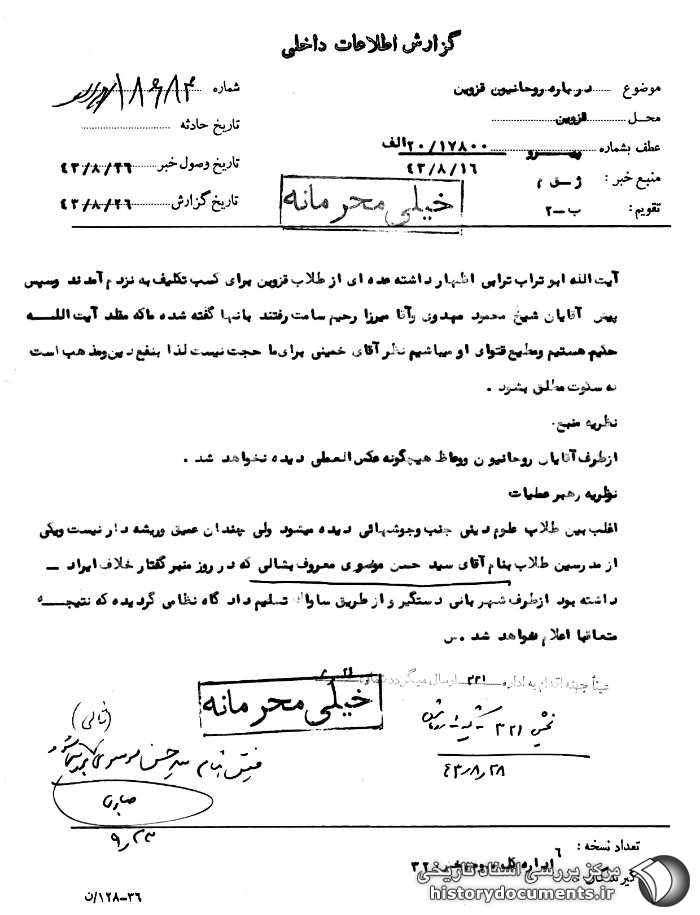 گزارش اطلاعات داخلی
موضوع درباره روحانیون قزوین
محل قزوین
عطف بشماره ۲۰/۱۷۸۰۰ الف
۴۳/۸/۱۶
منبع خبر :
تقویم : ب-۲
شماره ۱۸۶۸۴
تاریخ حادثه
تاریخ وصول خبر ۴۳/۸/۲۶
تاریخ گزارش ۴۳/۸/۲۶
خیلی محرمانه
آیت الله ابو تراب ترابی اظهار داشته عده ای از طلاب قزوین برای کسب تکلیف به نزدم آمدند وسپس
پیش آقایان شیخ محمود مهدوی وآقا میرزا رحیم سامت رفتند بانها گفته شده ماکه مقلد آیت اللـــه
حکیم هستیم ومطیع فتوای او میباشیم نظر آقای خمینی برای ما حجت نیست لذا بنفع دین ومذهب است
که سکوت مطلق بشود .
نظریه منبع .
ازطرف آقایان روحانیون ووعاظ هیچگونه عکس العملی دیده نخواهد شد .
نظریه رهبر عملیات
اغلب بین طلاب علوم دینی جنب وجوشهائی دیده میشود ولی چندان عمیق وریشه دار نیست ویکی
از مدرسین طلاب بنام آقای سید حسن موسوی معروف بشالی که در روز منبر گفتار خلاف ایراد ـ
داشته بود ازطرف شهربانی دستگیر و از طریق ساواک تسلیم دادگاه نظامی گردیده که نتیجـــه
متعاقبا اعلام خواهد شد . س
خیلی محرمانه
۳۲۱
۴۳/۸/۲۸
(شالی)
بنام سید حسن موسوی
۹/۲۳
تعداد نسخه : ۶
گیرندگان
اداره کل ۳۲
۳۶-۱۲۸/ن
مرکز بررسی اسناد تاریخی
historydocuments.ir